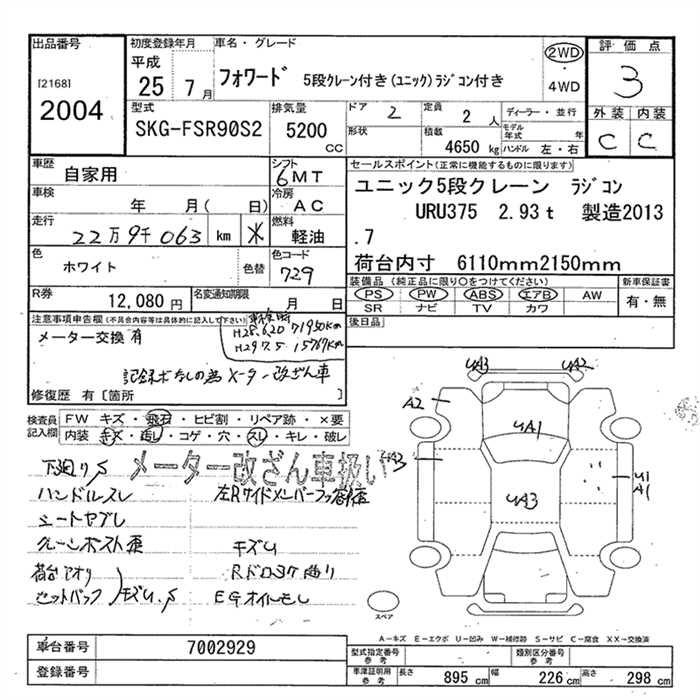 出品番号
[2168]
2004
初度登録年月
平成
25 7月
車名・グレード
フォワード 5段クレーン付き(ユニック)ラジコン付き
2WD
・
4WD
評価点
3
外装 内装
C C
型式
SKG-FSR90S2
排気量
5200
CC
ドア 2
形状
定員 2 人
積載 4650 kg
ディーラー・並行
モデル年式 年
ハンドル 左・右
車歴
自家用
シフト
6MT
車検
年 月( 日)
冷房
AC
走行
22万9千063 km
燃料
軽油
色
ホワイト
色替
色コード
729
R券
12,080円
名変通知期限
月 日
セールスポイント(正常に機能するものに限ります)
ユニック5段クレーン ラジコン
URU375 2.93t 製造2013
.7
荷台内寸 6110mm2150mm
装備品(純正品に限り○をつけてください)
PS PW ABS エアB AW
SR ナビ TV カワ
新車保証書
有・無
後日品
注意事項申告欄(不具合内容等は具体的に記入して下さい)
メーター交換 有
車検時
H28.6.20 71950km
H29.7.5 15767km
記録ボなしの為メーター改ざん車
修復歴 有〔箇所 〕
検査員記入欄
FW キズ・飛石・ヒビ割・リペア跡・×要
内装 キズ・汚レ・コゲ・穴・スレ・キレ・破レ
メーター改ざん車扱い
下廻りS
ハンドルスレ
左Rサイドメンバーフック
シートヤブレ
クレーンポスト
キズU
荷台アオリ
セットバック
キズU.S
Rドロヨケ曲り
EGオイルモレ
UA3 UA2
A2
UA1
UA3
UA3
U1
A1
スペア
A-キズ E-エクボ U-凹み W-補修跡 S-サビ C-腐食 XX-交換済
車台番号
7002929
登録番号
型式指定番号
参考
類別区分番号
参考
車庫証明用
参考
長さ 895 cm
幅 226 cm
高さ 298 cm